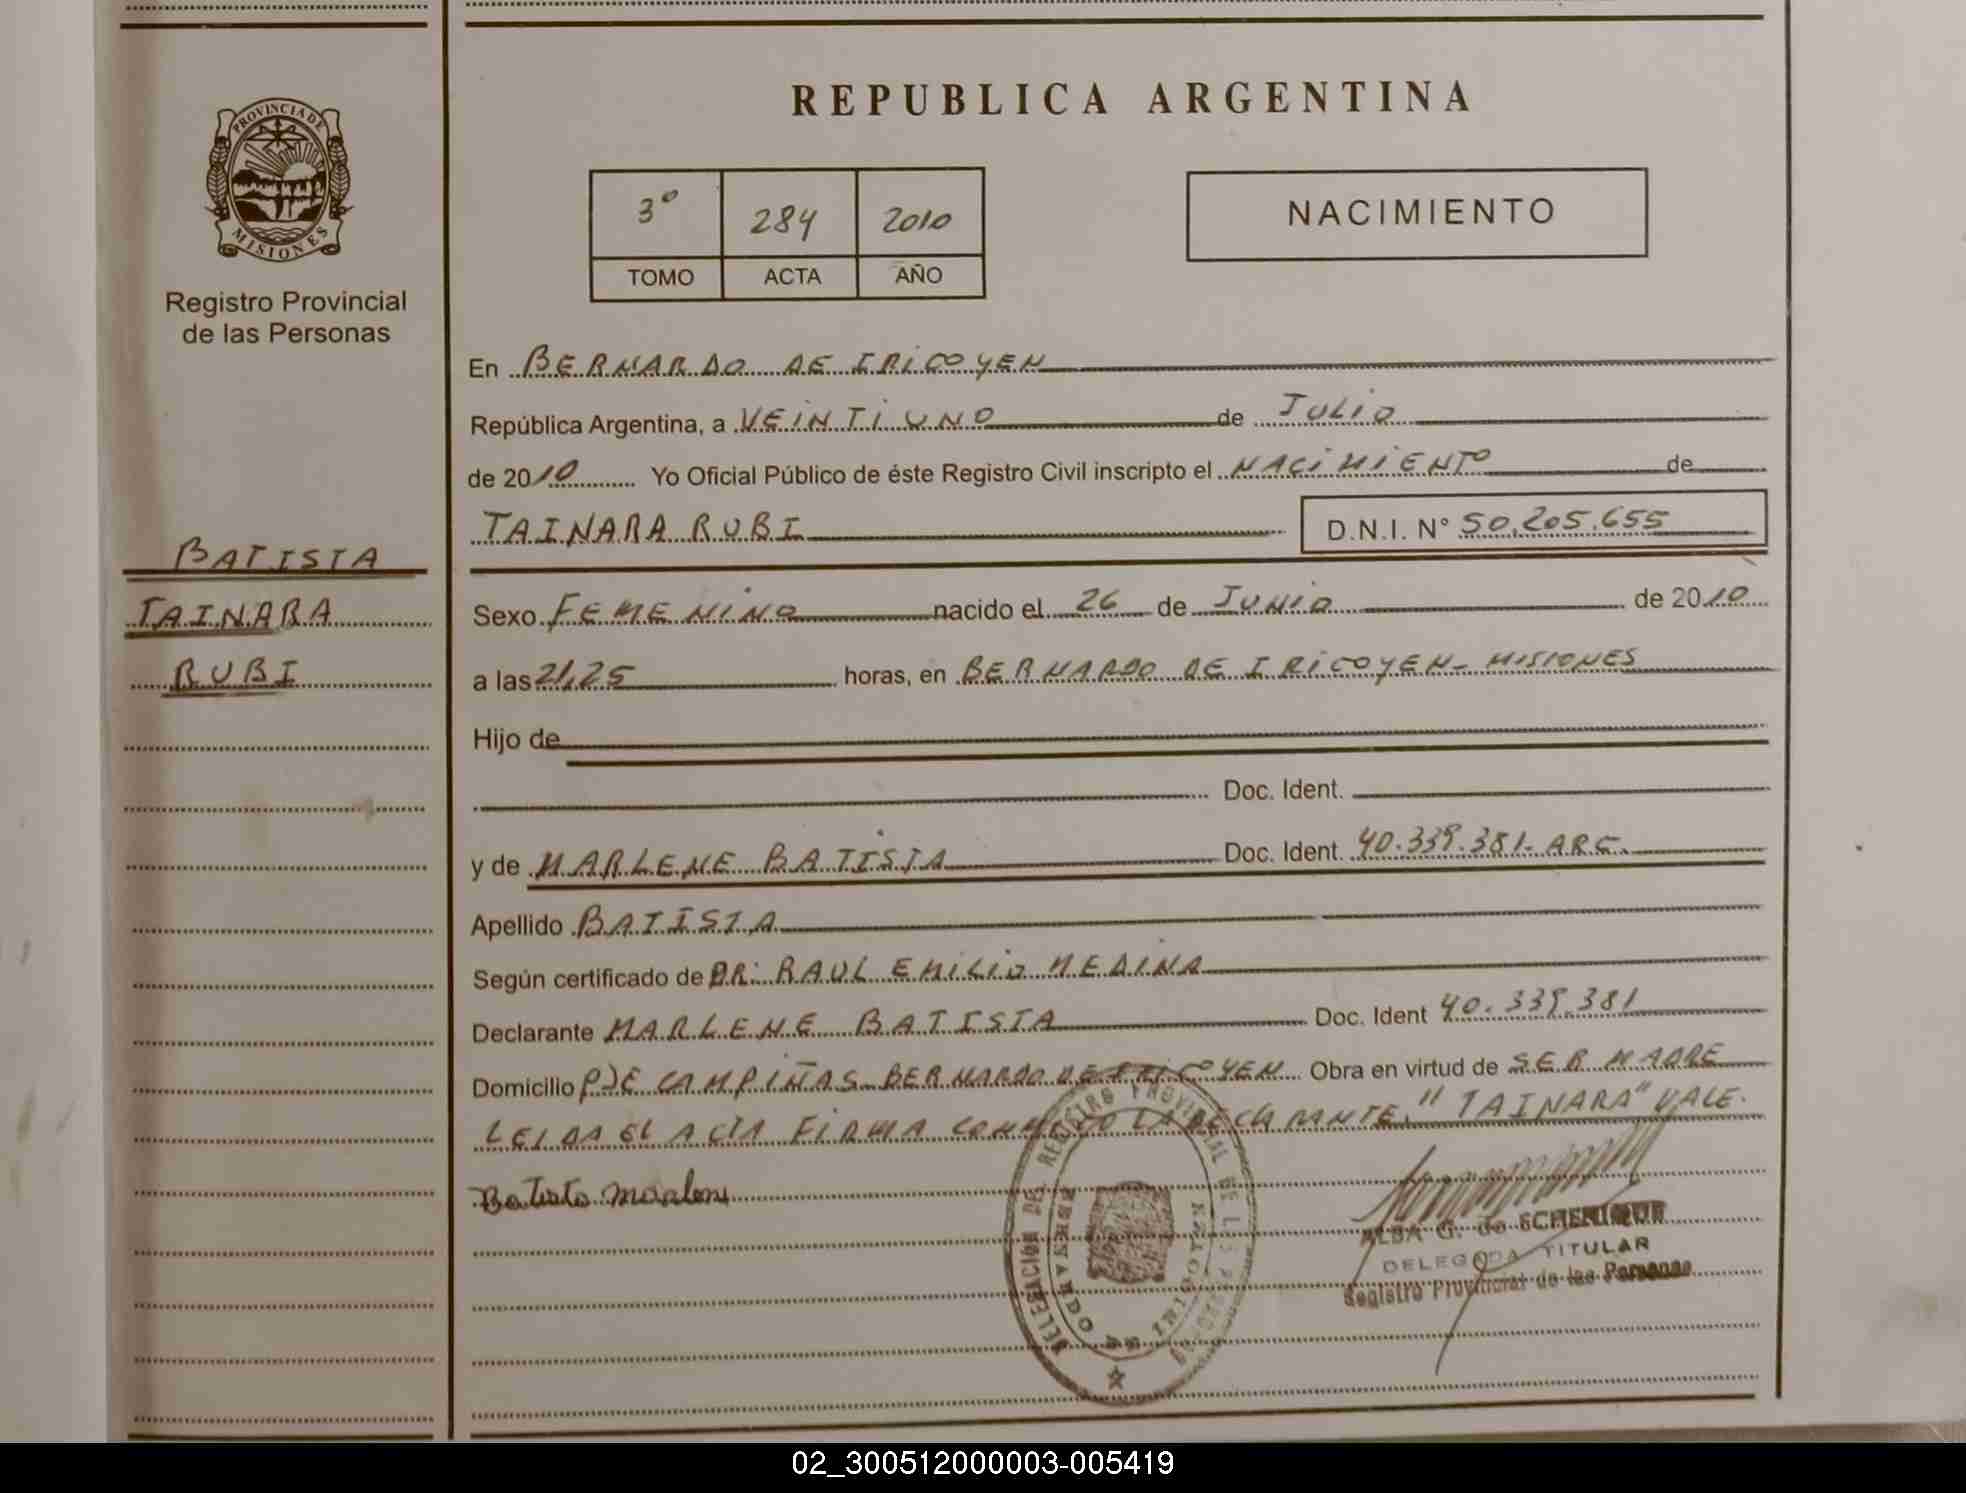 PROVINCIA DE
MISIONES
Registro Provincial
de las Personas
BATISTA
TAINARA
RUBI
REPUBLICA ARGENTINA
3° 284 2010
TOMO ACTA AÑO
NACIMIENTO
En BERNARDO DE IRIGOYEN
República Argentina, a VEINTIUNO de JULIO
de 2010 Yo Oficial Público de éste Registro Civil inscripto el NACIMIENTO de
TAINARA RUBI D.N.I. N° 50.205.655
Sexo FEMENINO nacido el 26 de JUNIO de 2010
a las 21,25 horas, en BERNARDO DE IRIGOYEN - MISIONES
Hijo de
Doc. Ident.
y de MARLENE BATISTA Doc. Ident. 40.339.381- ARG.
Apellido BATISTA
Según certificado de DR: RAUL EMILIO MEDINA
Declarante MARLENE BATISTA Doc. Ident 40.339.381
Domicilio PJE CAMPIÑAS BERNARDO DE IRIGOYEN Obra en virtud de SER MADRE
LEIDA EL ACTA FIRMA CONMIGO LA DECLARANTE. "TAINARA" VALE.
Batista Marlene
DELEGACION DEL REGISTRO PROVINCIAL DE LAS PERSONAS
BERNARDO DE IRIGOYEN
ALBA G. de
DELEGADA TITULAR
Registro Provincial de las Personas
02_300512000003-005419